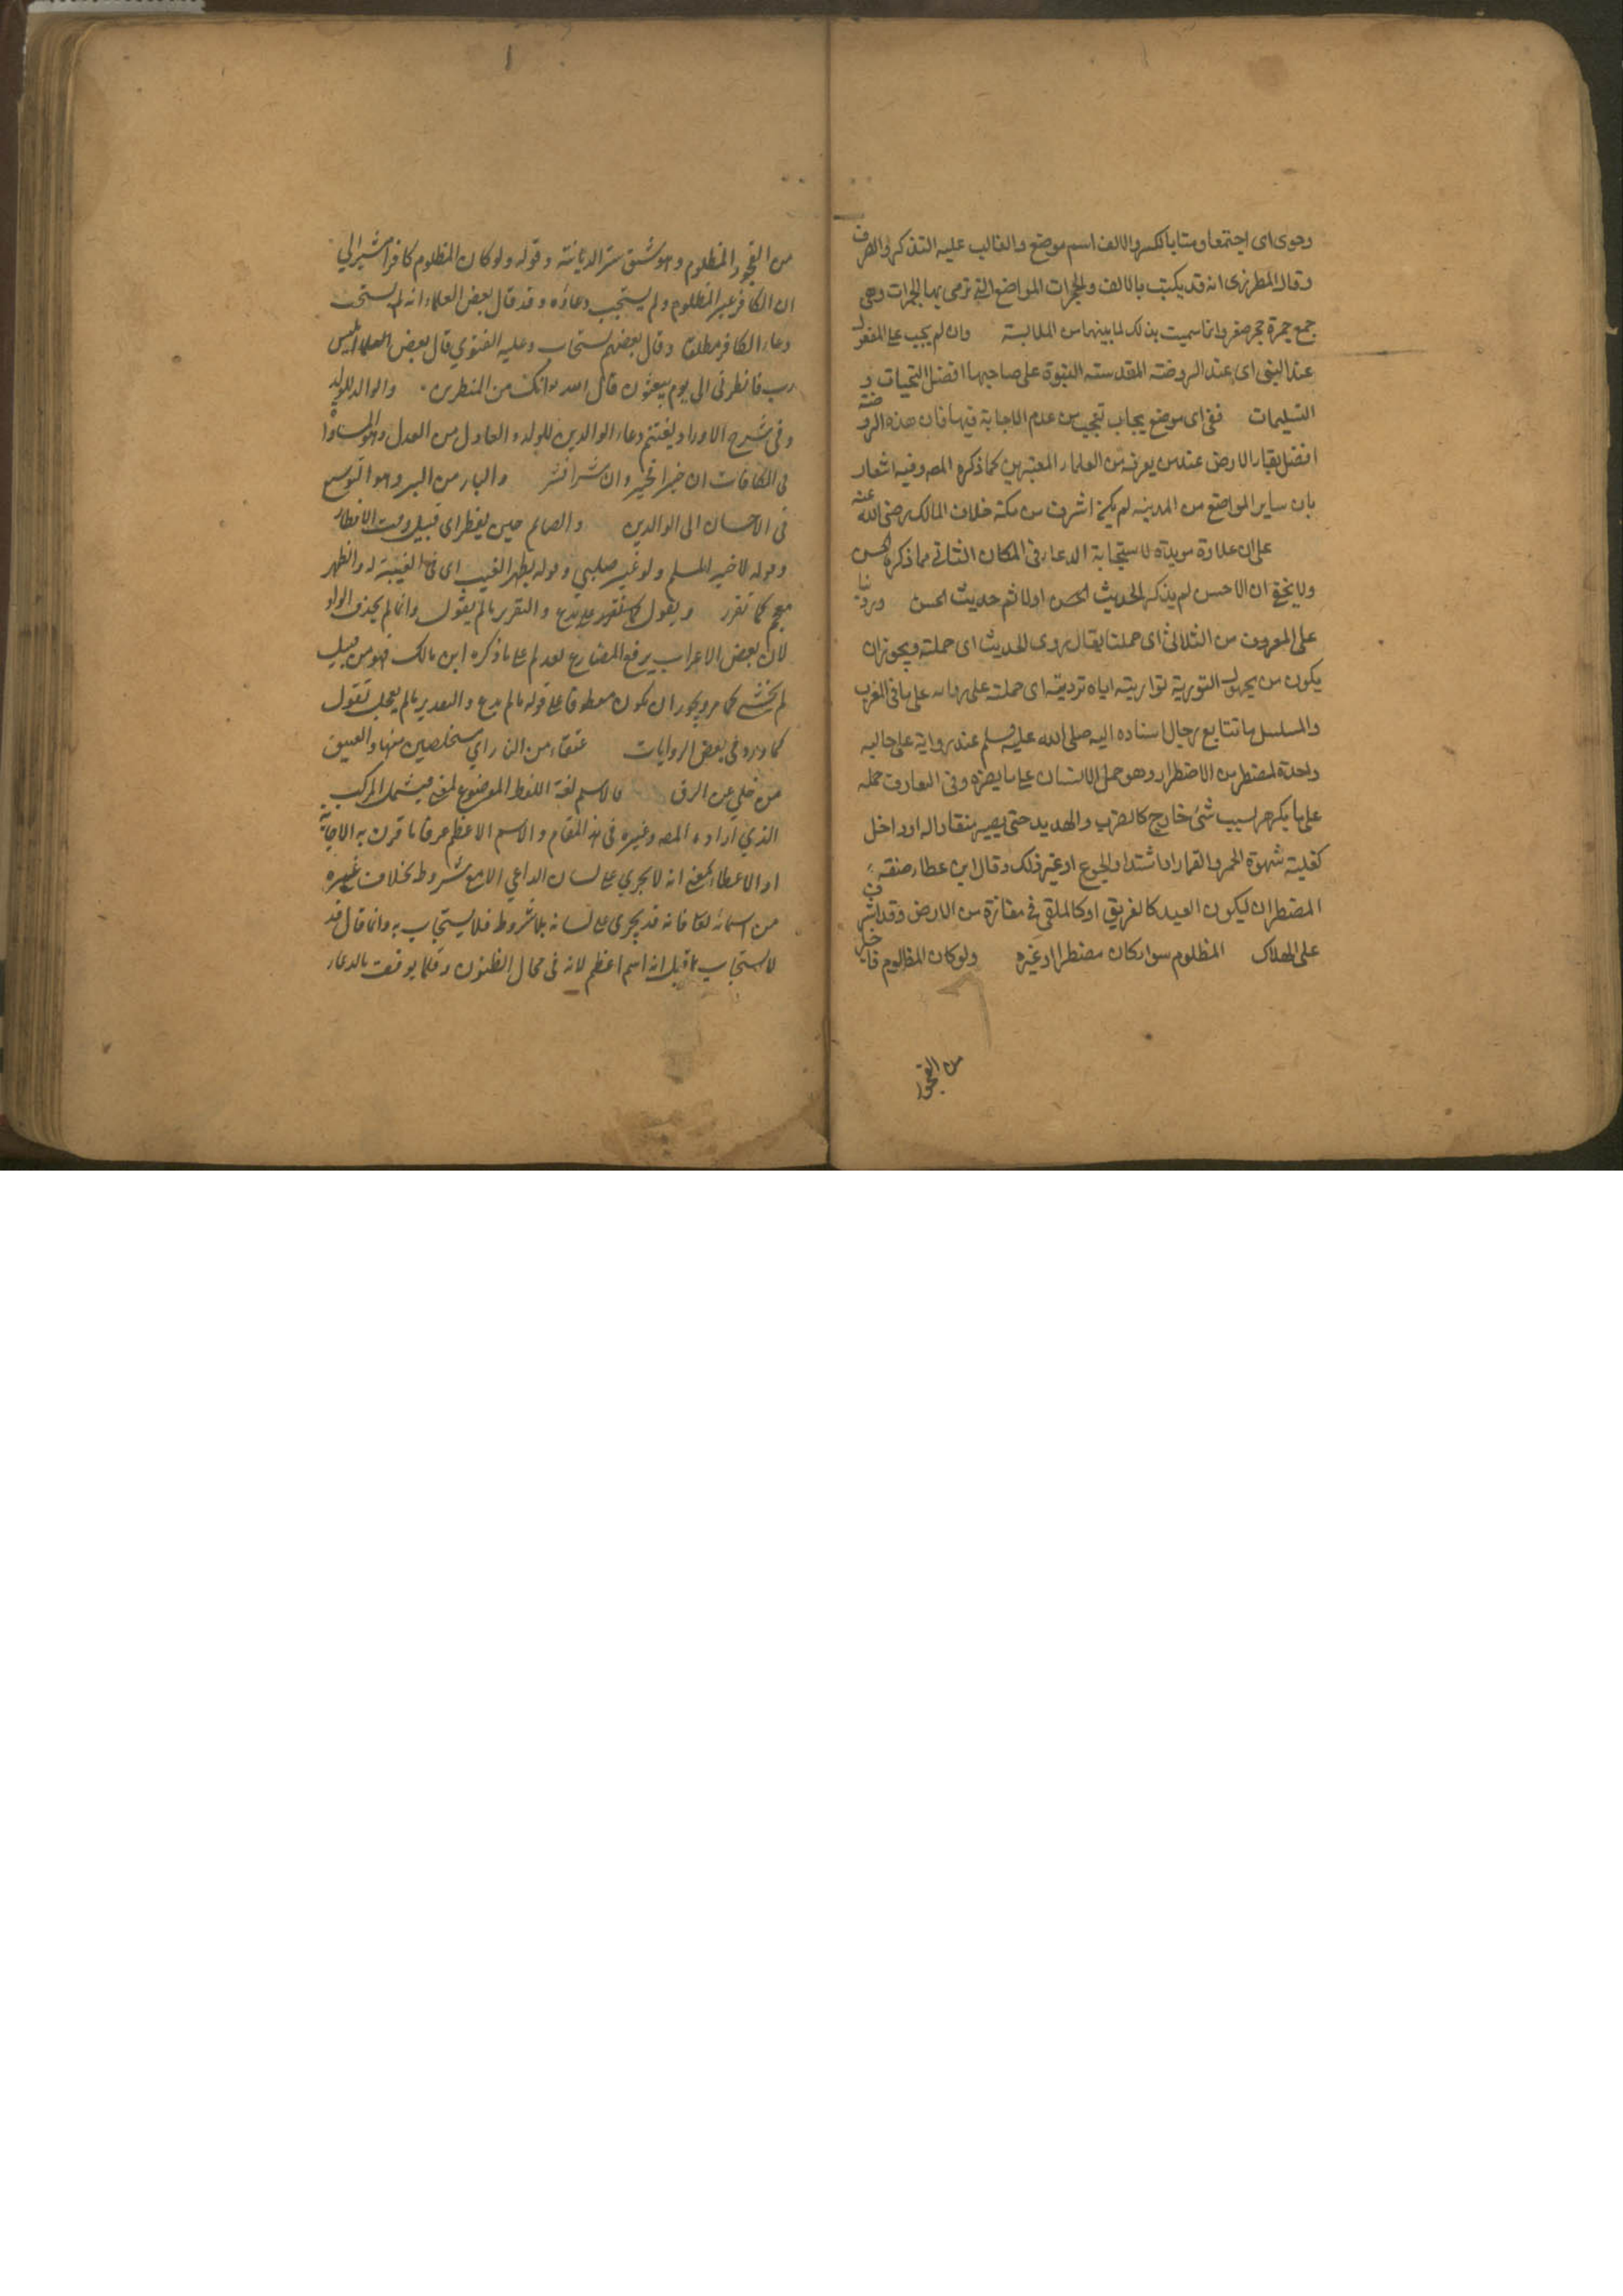 وحوى اى اجتمعا ومنا بالكسر والالف اسم موضع والغالب عليه التذكير والصرف
وقال المطرزى انه قد يكتب بالالف والجمرات المواضع التى ترمى بها الجمرات وهى
جمع جمرة حجر صغير وانما سميت بذلك لما بينهما من الملابسة وان لم يجب على المفعول
عند النبى اى عند الروضة المقدسته النبوة على صاحبها افضل التحيات و
التسليمات ففى اى موضع يجاب تعجب من عدم الاجابة فيها فان هذه الروضة
افضل بقاع الارض عند من يعرفه من العلماء المعتبرين كما ذكره المصه وفيه اشعار
بان ساير المواضع من المدينه لم يكن اشرف من مكة خلاف المالك رضى الله عنه
على ان علاوة مويدة لاستجابة الدعاء فى المكان الثانى مما ذكره الحسن
ولا يخفى ان الاحسن لم يذكر الحديث الحسن اولا ثم حديث الحسن وروينا
على المعروف من الثلاثى اى حملنا يقال روى الحديث اى حملته ويجوز ان
يكون من مجهول التورية اياه ترديقه اى حملته على على ما فى المغرب
والمسلسل ما تتابع رجال اسناده اليه صلى الله عليه وسلم عند رواية على حاليه
واحدة المضطر من الاضطرار وهو حمل الانسان على ما يضره وفى التعارف حمله
على ما يكره بسبب شئ خارج كالضرب والهديد حتى يصير منقادا له او داخل
كغلبة شهوة الخمر والقمار او اشتداد الجوع او غير ذلك وقال ابن عطار صفته
المضطر ان ليكون العبد كالغريق او كالملقى فى مفازة من الارض وقد اشرف
على الهلاك المظلوم سواء كان مضطرا او غيره ولو كان المظلوم فاجرا
من الفجور
من الفجور المظلوم وهو شق ستر الديانة وقوله ولو كان المظلوم كافرا مشير الى
ان الكافر غير المظلوم ولم يستجب دعاؤه وقد قال بعض العلماء انه لم يستجب
دعاء الكافر مطلقا وقال بعضهم يستجاب وعليه الفتوى قال بعض العلماء ابليس
رب فانظرنى الى يوم يبعثون قال الله انك من المنظرين . والوالد للولد
وفى شرح الاوراد يغتنم دعاء الوالدين للولد والعادل من العدل وهو المساواة
فى المكافات ان خيرا فخير وان شرا فشر والبار من البر وهو التوسع
فى الاحسان الى الوالدين والصائم حين يفطر اى قبيل وقت الافطار
وقوله لاخيه المسلم ولو غير صلبى وقوله بظهر الغيب اى فى الغيبة له والظهر
مقحم كما تقرر ويقول كا والتقدير ما لم يقول وانما لم يحذف الواو
لان بعض الاعراب يرفع المضارع بعد لم على ما ذكره ابن مالك فهو من قبيل
لم يخشى كما مر ويجوز ان يكون معطوفا على قوله ما لم يدع والتقدير ما لم يعجل تقول
كما ورد فى بعض الروايات عتقاء من النار اى مستخلصين منها والعتيق
من خلى عن الرق فالاسم لغة اللفظ الموضوع لمعنى فيشمل المركب
الذى اراده المصه وغيره فى هذا المقام والاسم الاعظم عرفا ما قرن به الاجابة
او الاعطاء بمعنى انه لا يجرى على لسان الداعى الا مع شروط بخلاف غيره
من اسمائه تعالى فانه قد يجرى على لسانه بلا شروط فلا يستجاب به وانما قال قد
لا يستجاب ما قيل انه اسم اعظم لانه فى مجال الظنون وقلما يوقت بالدعاء